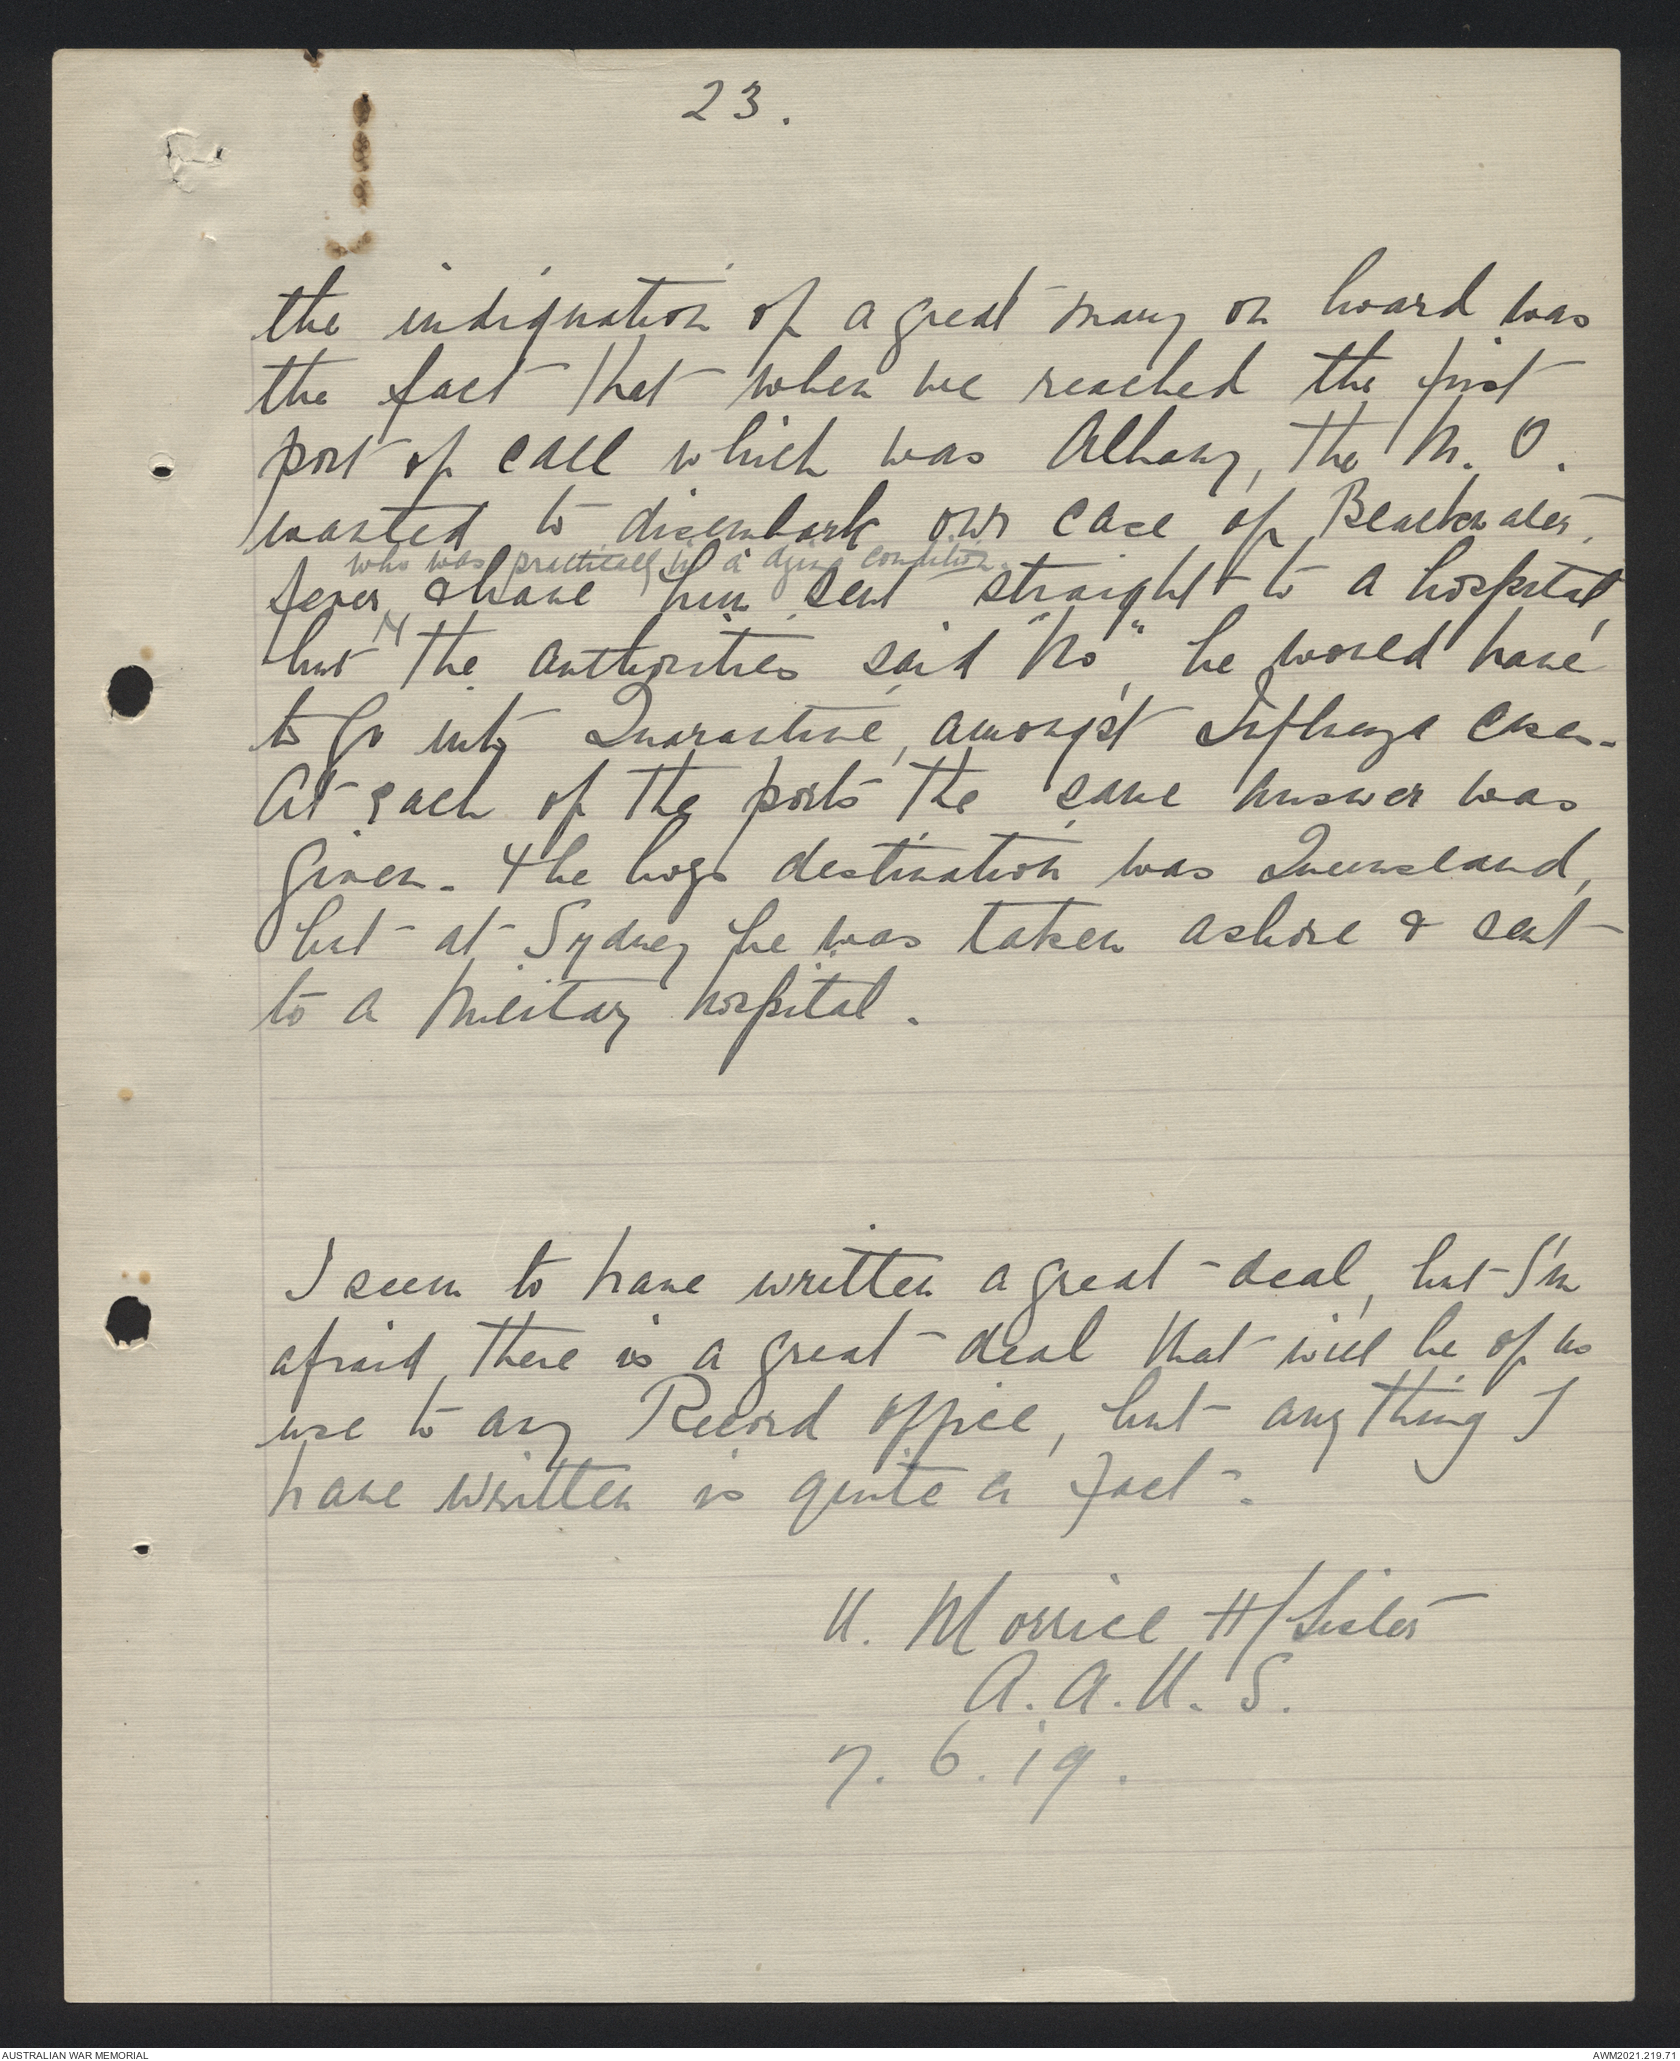 23.
the indignation of a great many on board was
the fact that when we reached the first
port of call which was Albany, the M. O.
wanted to disembark our case of Blackwater
who was practically in a dying condition.
fever, & have him sent straight to a hospital,
but the authorities said "No" he would have
to go into Quarantine, amongst Influenza cases.
At each of the ports the same answer was
given. The boys destination was Queensland,
but at Sydney he was taken ashore & sent
to a Military hospital.
I seem to have written a great deal, but I'm
afraid, there is a great deal that will be of no
use to any Record office, but anything I
have written is quite a fact.
N. Morrice H/Sister
A. A. N. S.
7. 6. 19.
AUSTRALIAN WAR MEMORIAL
AWM2021.219.71